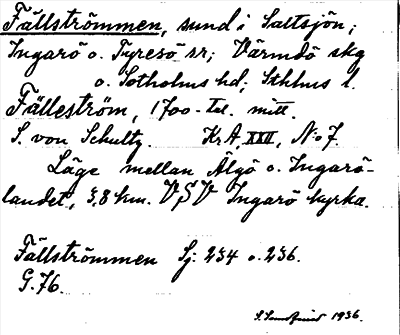 Fällströmmen, sund i Saltsjön;
Ingarö o. Tyresö sr; Värmdö skg
o. Sotholms hd; Sthlms l.
Fälleström, 1700-tal. mitt.
S. von Schultz. Kr.A. XXII, N:o 7.
Läge mellan Älgö o. Ingarö-
landet, 3,8 km. VSV Ingarö kyrka.
Fällströmmen Sj. 234 o. 236.
G. 76.
S. Sundquist 1936.